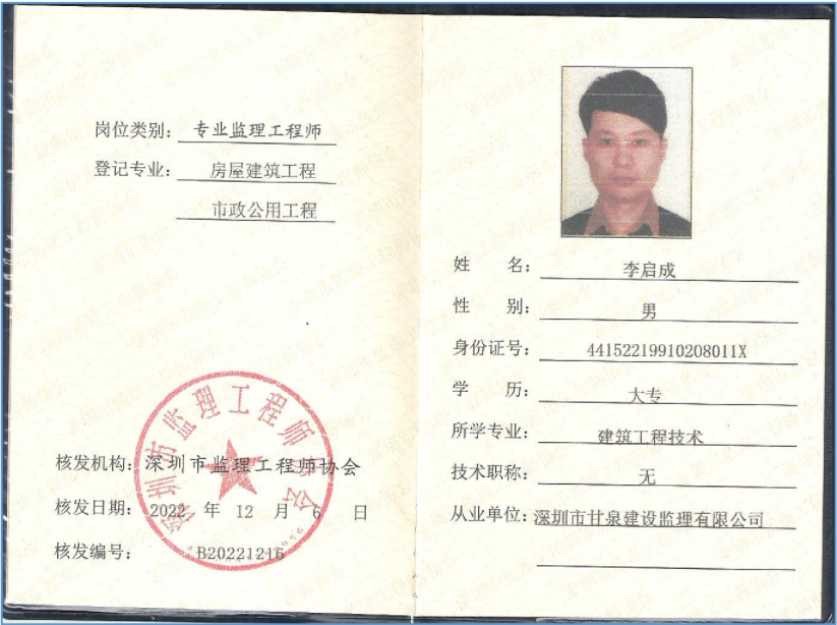 岗位类别: 专业监理工程师
登记专业: 房屋建筑工程
市政公用工程
深圳市监理工程师协会
核发机构: 深圳市监理工程师协会
核发日期: 2022 年 12 月 6 日
核发编号: B20221216
姓 名: 李启成
性 别: 男
身份证号: 44152219910208011X
学 历: 大专
所学专业: 建筑工程技术
技术职称: 无
从业单位: 深圳市甘泉建设监理有限公司